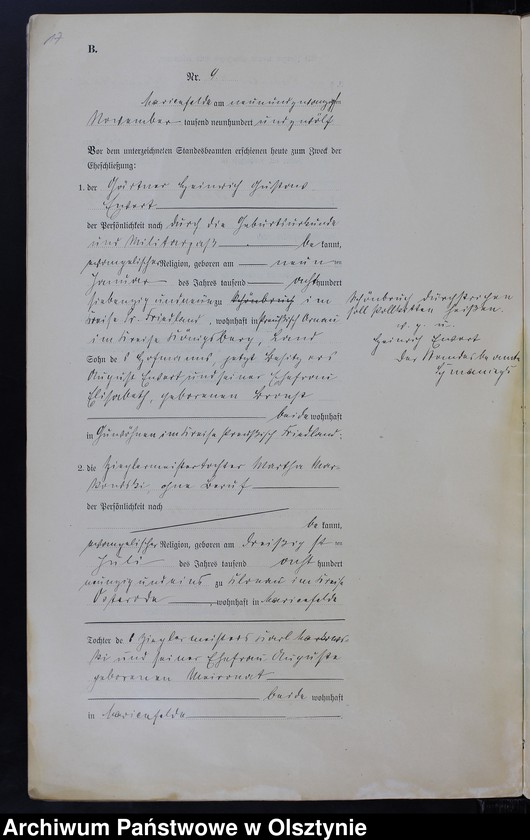 17
B.
Nr. 9
Marienfelde am neunundzwanzigsten
November tausend neunhundert und zwölf
Vor dem unterzeichneten Standesbeamten erschienen heute zum Zweck der
Eheschließung:
1. der Gärtner Heinrich Gustav
Ewert
der Persönlichkeit nach durch die Geburtsurkunde
und Militärpaß be kannt,
evangelischer Religion, geboren am neun ten
Januar des Jahres tausend acht hundert
siebenzig und neun zu Schönbruch im
Kreise Pr. Friedland, wohnhaft in Preußisch Arnau
im Kreise Königsberg, Land
Sohn des Hofmanns, jetzt Besitzers
August Ewert und seiner Ehefrau
Elisabeth, geborenen
beide wohnhaft
in im Kreise Preußisch Friedland.
2. die Zieglermeistertochter Martha Mar-
kowski, ohne Beruf
der Persönlichkeit nach
be kannt,
evangelischer Religion, geboren am dreißigst en
Juli des Jahres tausend acht hundert
neunzig und eins zu Ilrnau im Kreise
Osterode, wohnhaft in Marienfelde
Tochter des Zieglermeisters Karl Markows-
ki und seiner Ehefrau Auguste
geborenen
beide wohnhaft
in Marienfelde
Schönbruch durchstrichen
soll heißen.
v. g. u.
Heinrich Ewert
Der Standesbeamte
Archiwum Państwowe w Olsztynie